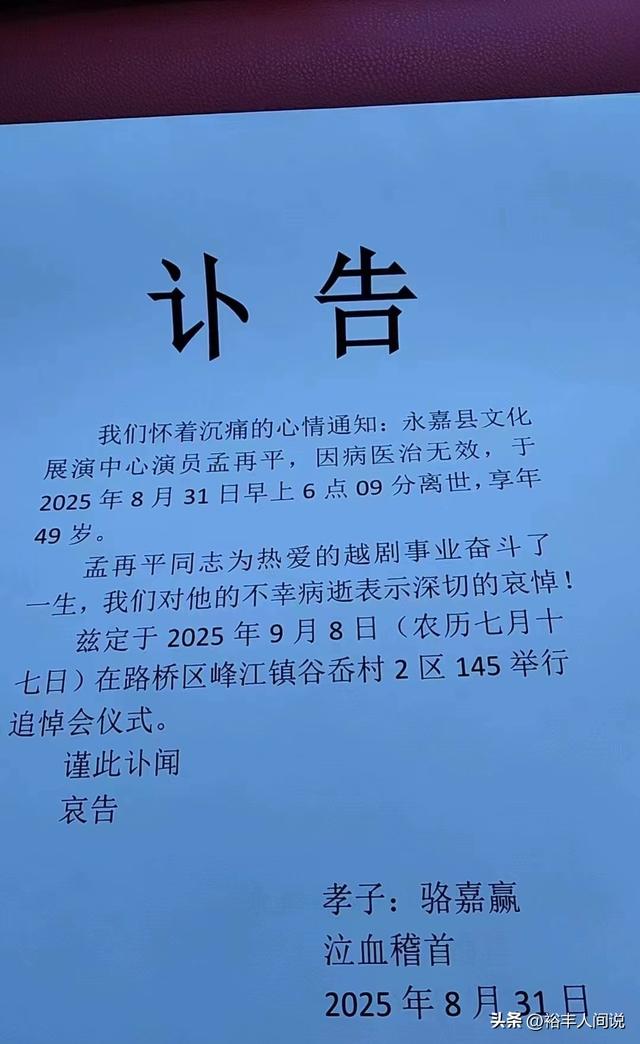 讣 告
我们怀着沉痛的心情通知：永嘉县文化
展演中心演员孟再平，因病医治无效，于
2025 年 8 月 31 日早上 6 点 09 分离世，享年
49 岁。
孟再平同志为热爱的越剧事业奋斗了
一生，我们对他的不幸病逝表示深切的哀悼！
兹定于 2025 年 9 月 8 日（农历七月十
七日）在路桥区峰江镇谷岙村 2 区 145 举行
追悼会仪式。
谨此讣闻
哀告
孝子：骆嘉赢
泣血稽首
2025 年 8 月 31 日
头条 @裕丰人间说